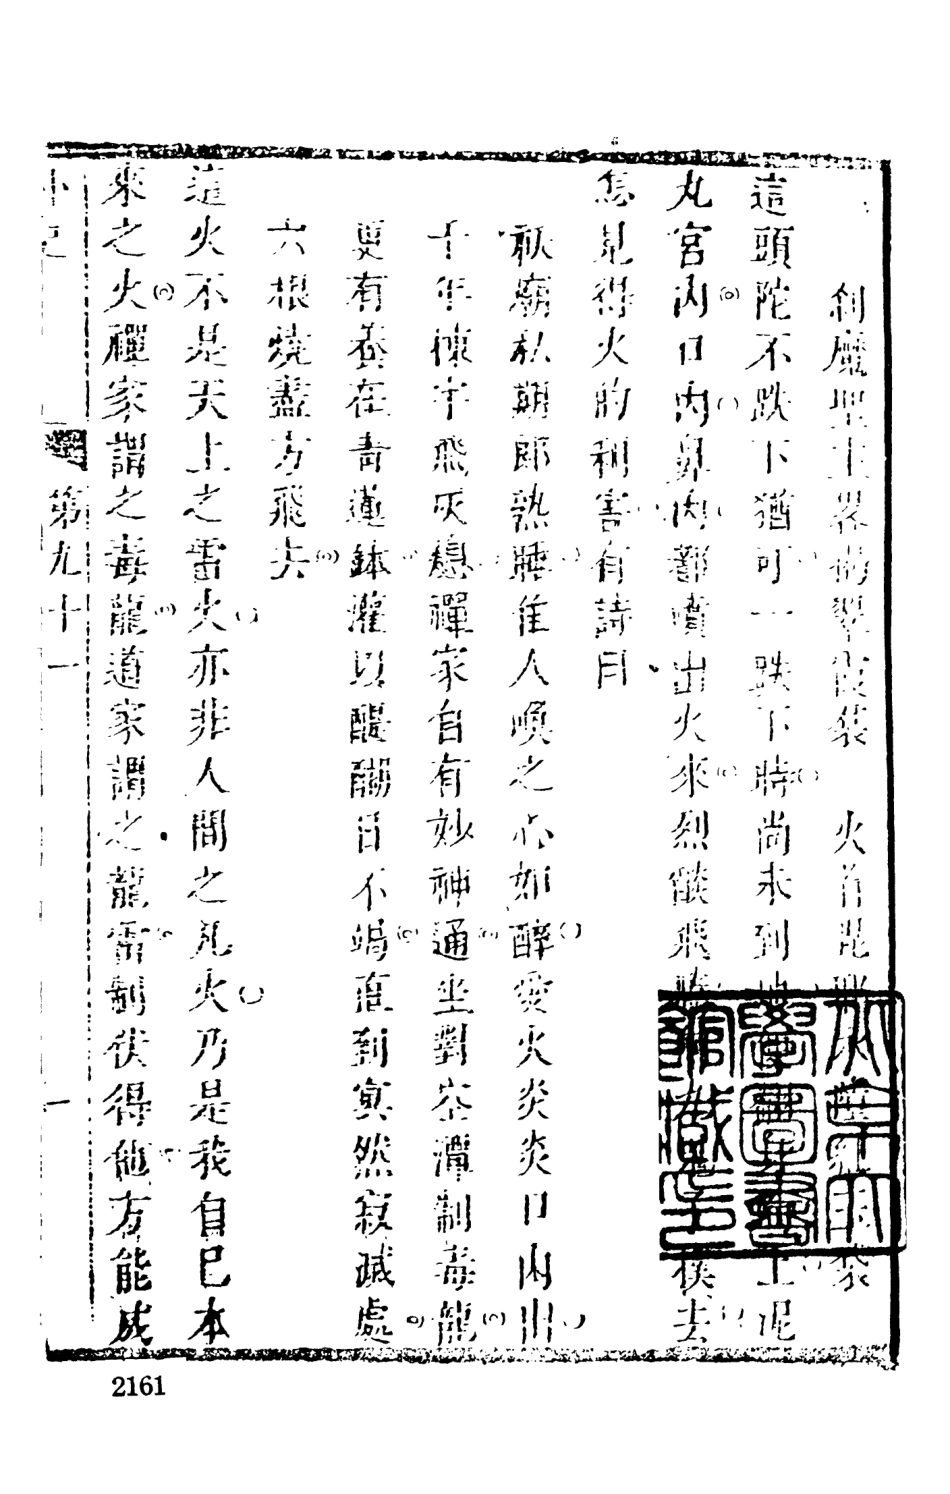 剎魔聖主略揭翠霞裳　火首毘耶
這頭陀不跌下猶可一跌下時尚未到地
丸宮內口內鼻內都噴出火來烈燄飛騰
怎見得火的利害有詩曰
祆廟私期郎熟睡佳人喚之心如醉愛火炎炎口內出
十年棟宇飛灰燼禪家自有妙神通坐對空潭制毒龍
更有養在青蓮鉢灌以醍醐日不竭直到冥然寂滅處
六根燒盡方飛去
這火不是天上之雷火亦非人間之凡火乃是我自已本
來之火禪家謂之毒龍道家謂之龍雷制伏得他方能成
第九十一
一
2161